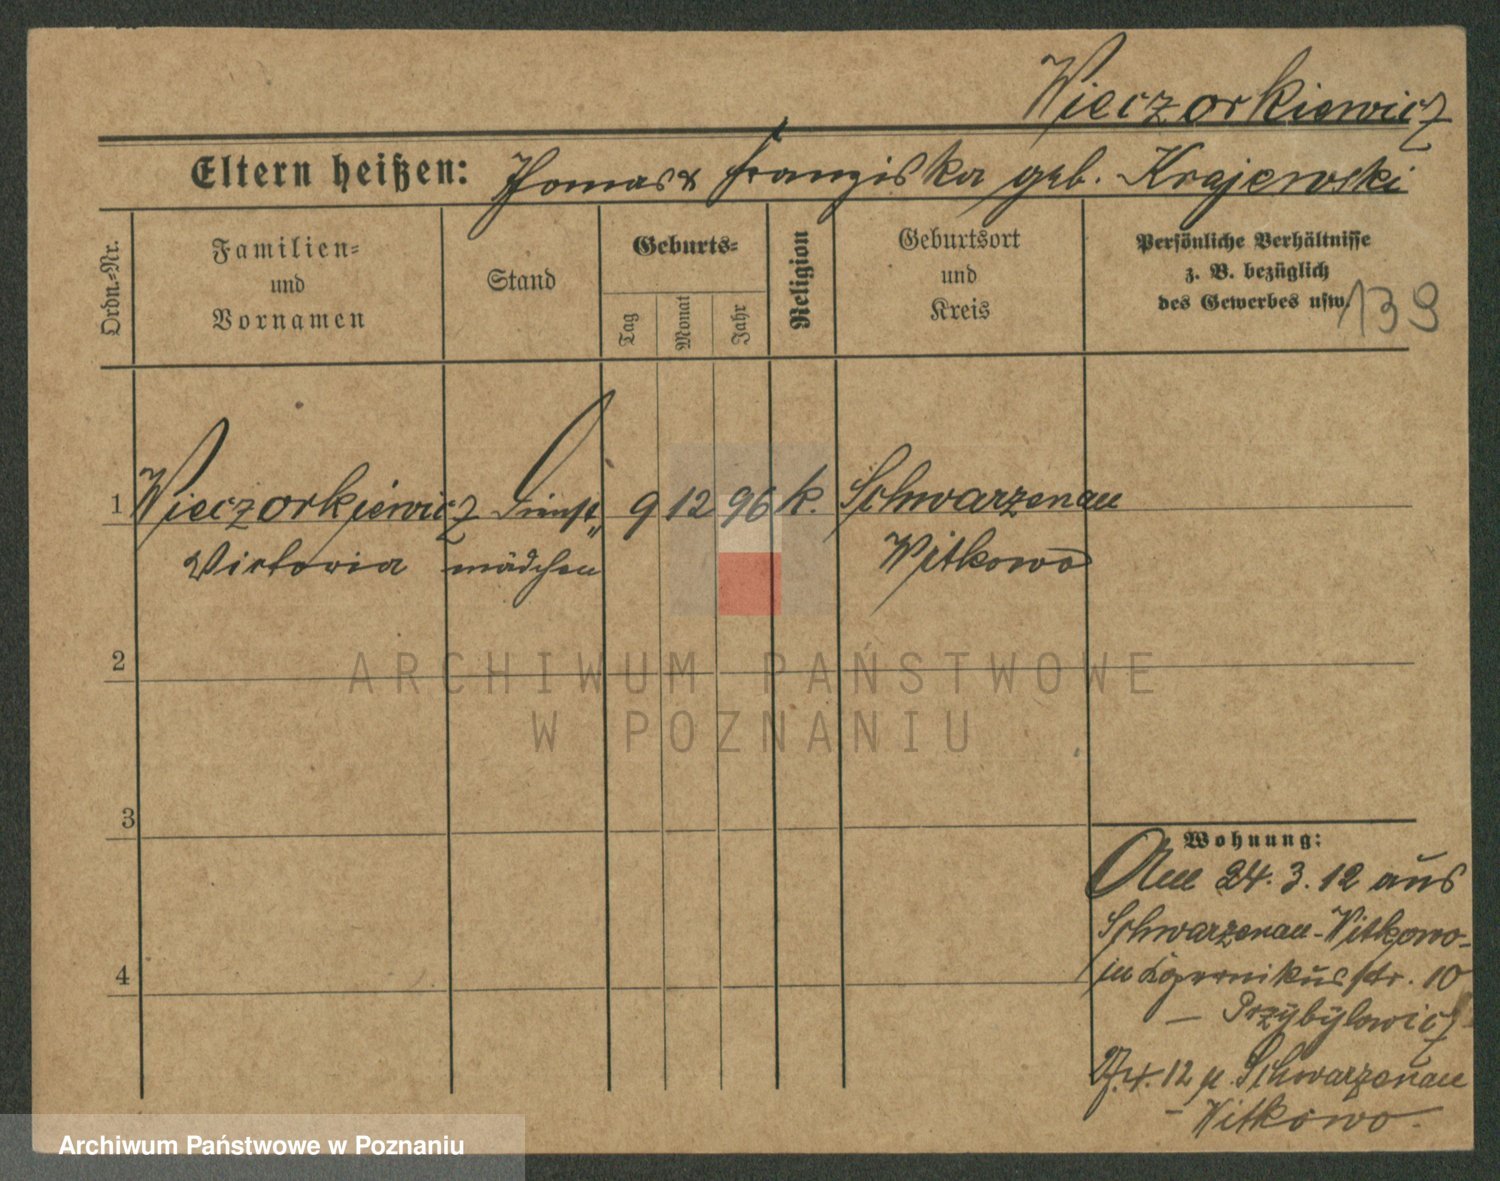 Wieczorkiewicz
Eltern heißen: Thomas & Franziska geb. Krajewski
Ordn.-Nr.
Familien- und Vornamen
Stand
Geburts-
Tag
Monat
Jahr
Religion
Geburtsort und Kreis
Persönliche Verhältnisse
z. B. bezüglich
des Gewerbes usw.
139
1 Wieczorkiewicz Dienst„ 9 12 96 k. Schwarzenau
Victoria mädchen Witkowo
2
3
4
Wohnung:
Am 24.3.12 aus
Schwarzenau-Witkowo-
in Kopernikusstr. 10
— Przybylowicz
4.12 n. Schwarzenau
— Witkowo.
ARCHIWUM PAŃSTWOWE
W POZNANIU
Archiwum Państwowe w Poznaniu